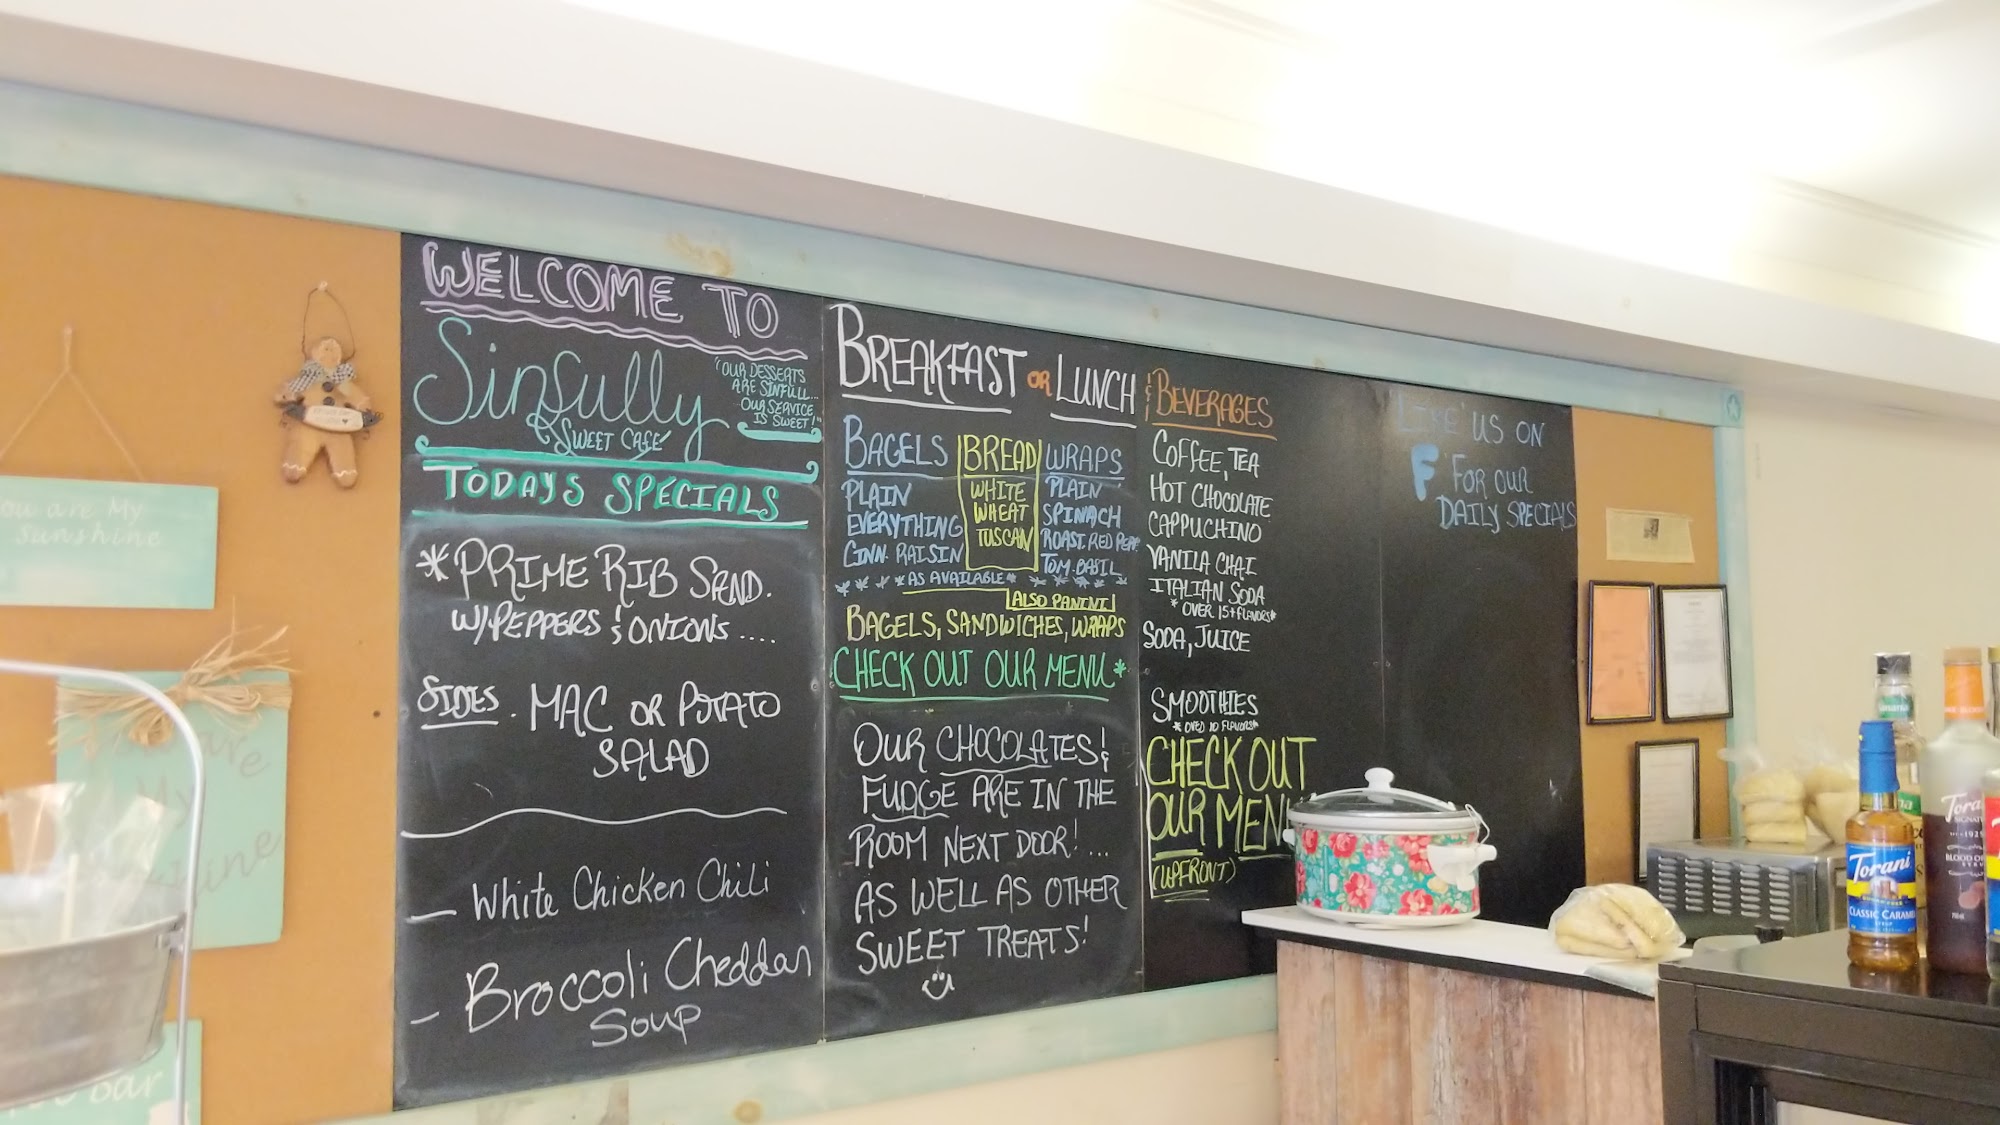 WELCOME TO
Sinfully
SWEET CAFE
"OUR DESSERTS
ARE SINFULL...
OUR SERVICE
IS SWEET!"
TODAYS SPECIALS
*PRIME RIB SAND.
W/PEPPERS & ONIONS ....
SIDES. MAC OR POTATO
SALAD
- WHITE CHICKEN CHILI
- Broccoli Cheddar
Soup
BREAKFAST OR LUNCH
BAGELS
PLAIN
EVERYTHING
CINN. RAISIN
BREAD
WHITE
WHEAT
TUSCAN
WRAPS
PLAIN
SPINACH
ROAST. RED PEPP.
TOM. BASIL
*AS AVAILABLE*
ALSO PANINI
BAGELS, SANDWICHES, WRAPS
CHECK OUT OUR MENU*
OUR CHOCOLATES &
FUDGE ARE IN THE
ROOM NEXT DOOR! ...
AS WELL AS OTHER
SWEET TREATS!
& BEVERAGES
COFFEE, TEA
HOT CHOCOLATE
CAPPUCHINO
VANILA CHAI
ITALIAN SODA
*OVER 15+ FLAVORS*
SODA, JUICE
SMOOTHIES
*OVER 10 FLAVORS*
CHECK OUT
OUR MENU
(UPFRONT)
LIKE US ON
F FOR OUR
DAILY SPECIALS
you are My
Sunshine
are
My
shine
bar
Torani
CLASSIC CARAMEL
Torani
SIGNATURE
1925
BLOOD